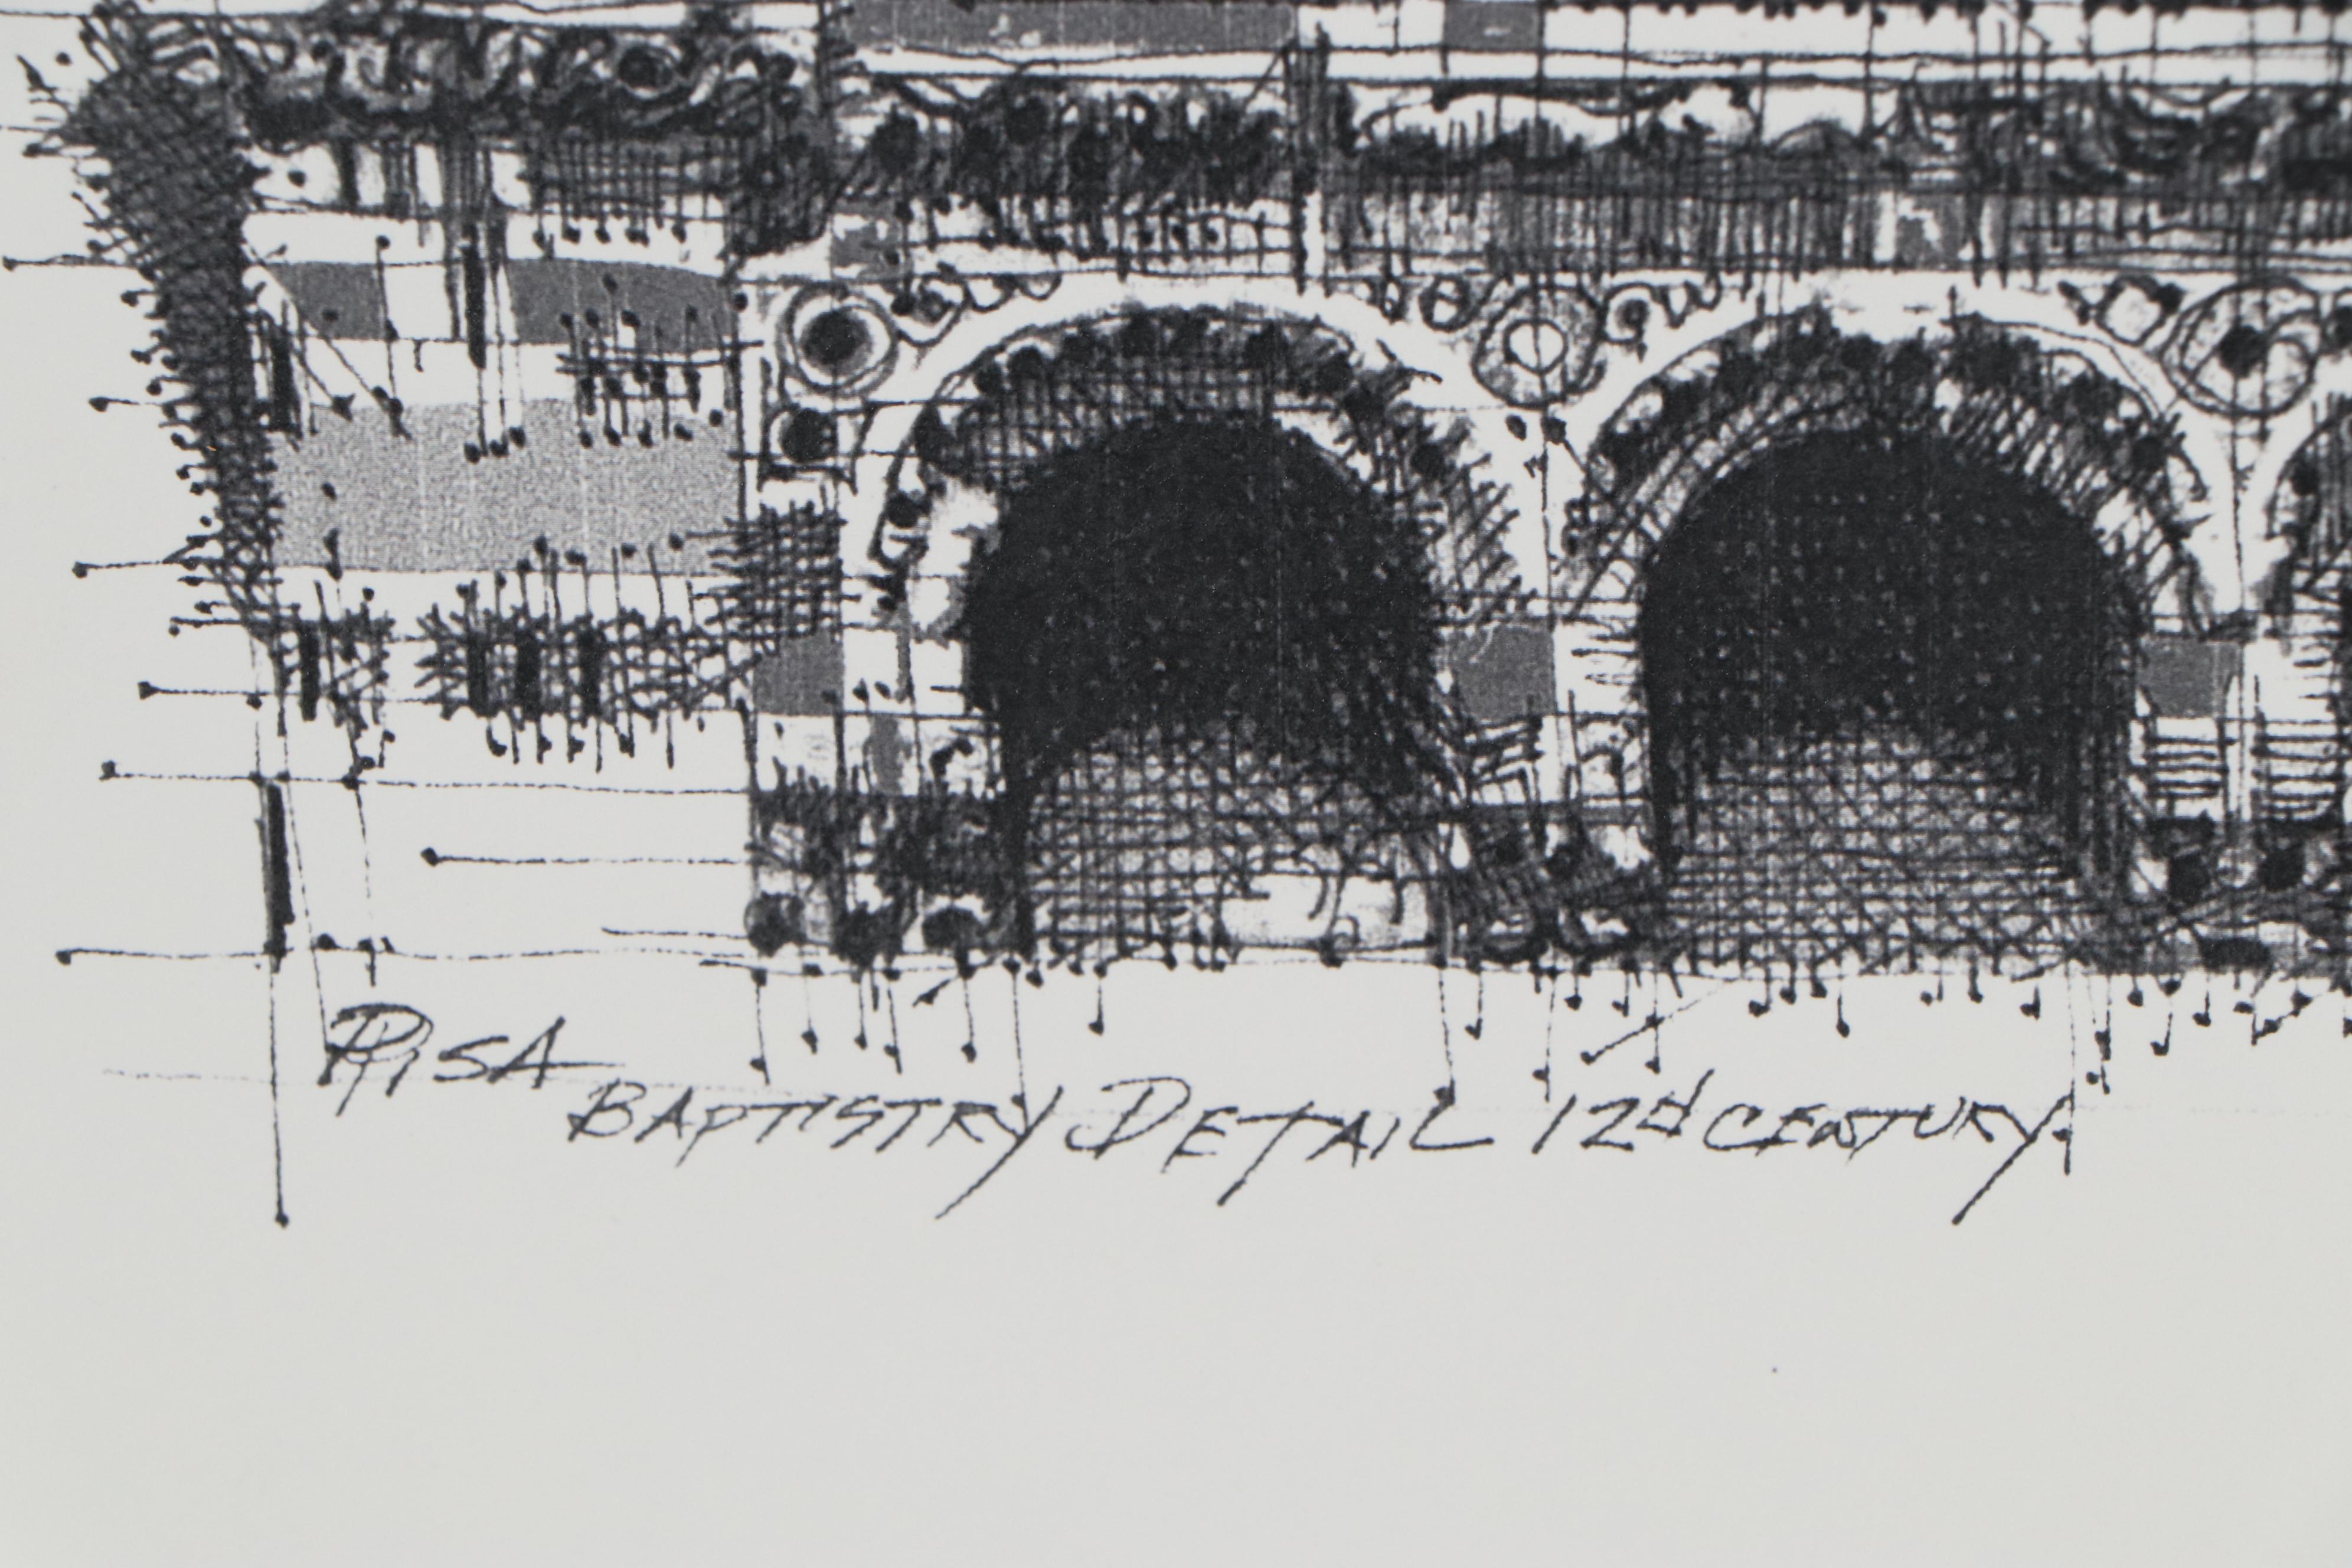 PISA
BAPTISTRY DETAIL 12d CENTURY